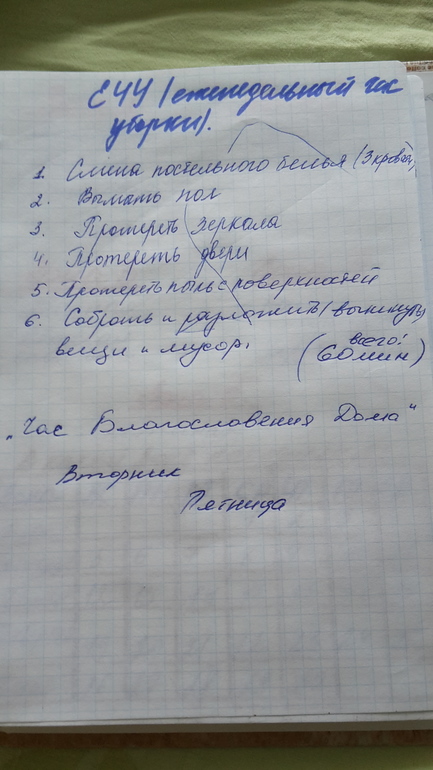 ЕЧУ (еженедельный час
уборки).
1. Смена постельного белья (3 кровати)
2. Вымыть пол
3. Протереть зеркала
4. Протереть двери
5. Протереть пыль с поверхностей
6. Собрать и разложить (выкинуть)
вещи и мусор.
(всего:
60 мин)
„Час Благословения Дома“
Вторник
Пятница